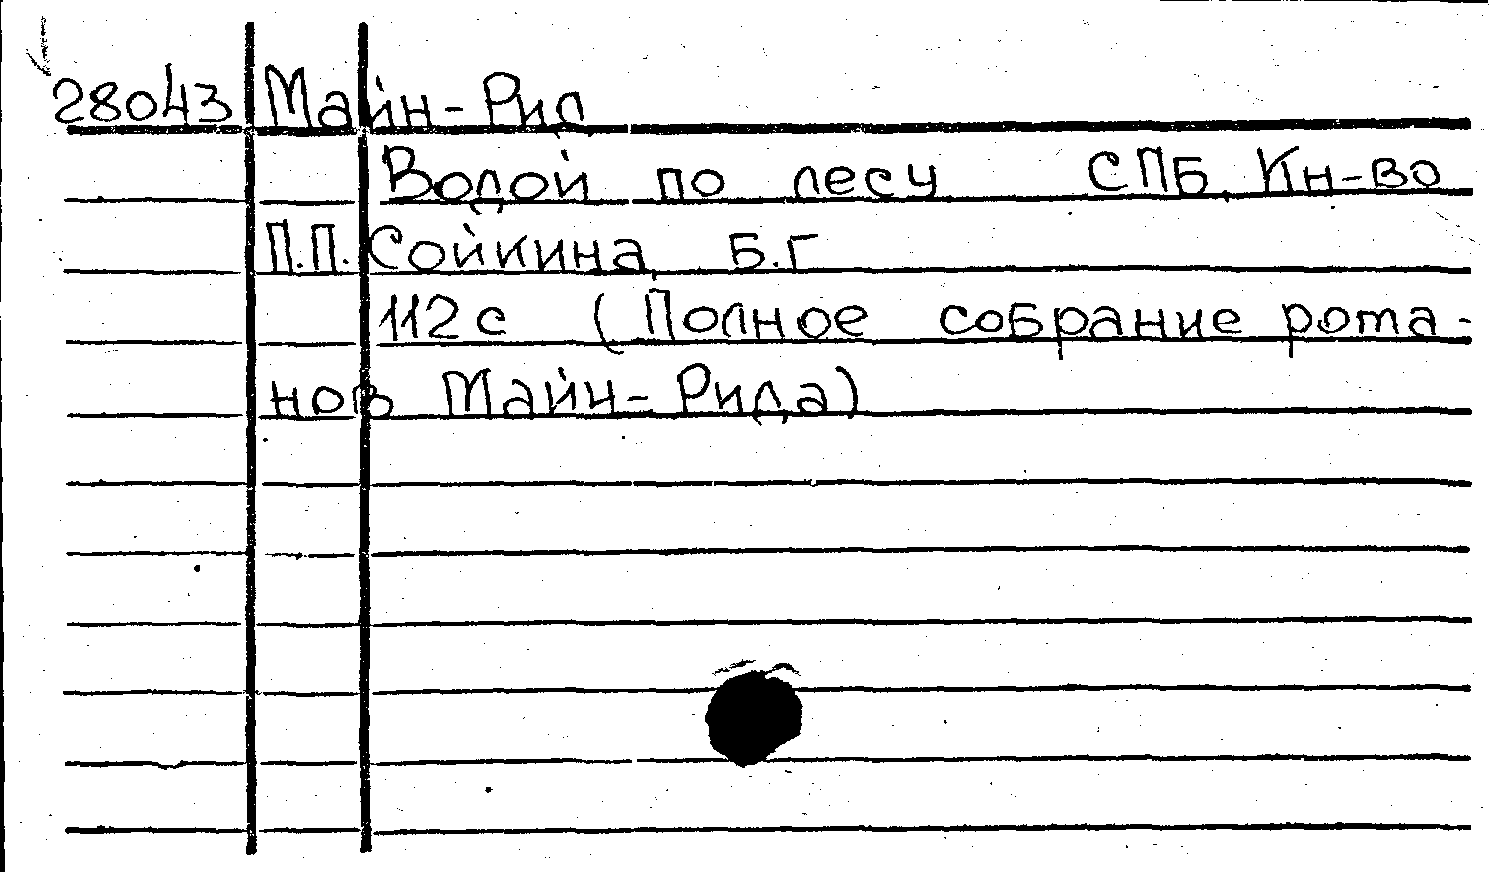 28043 Майн-Рид
Водой по лесу СПБ, Кн-во
П.П. Сойкина, Б.Г
112 с (Полное собрание рома-
нов Майн-Рида)